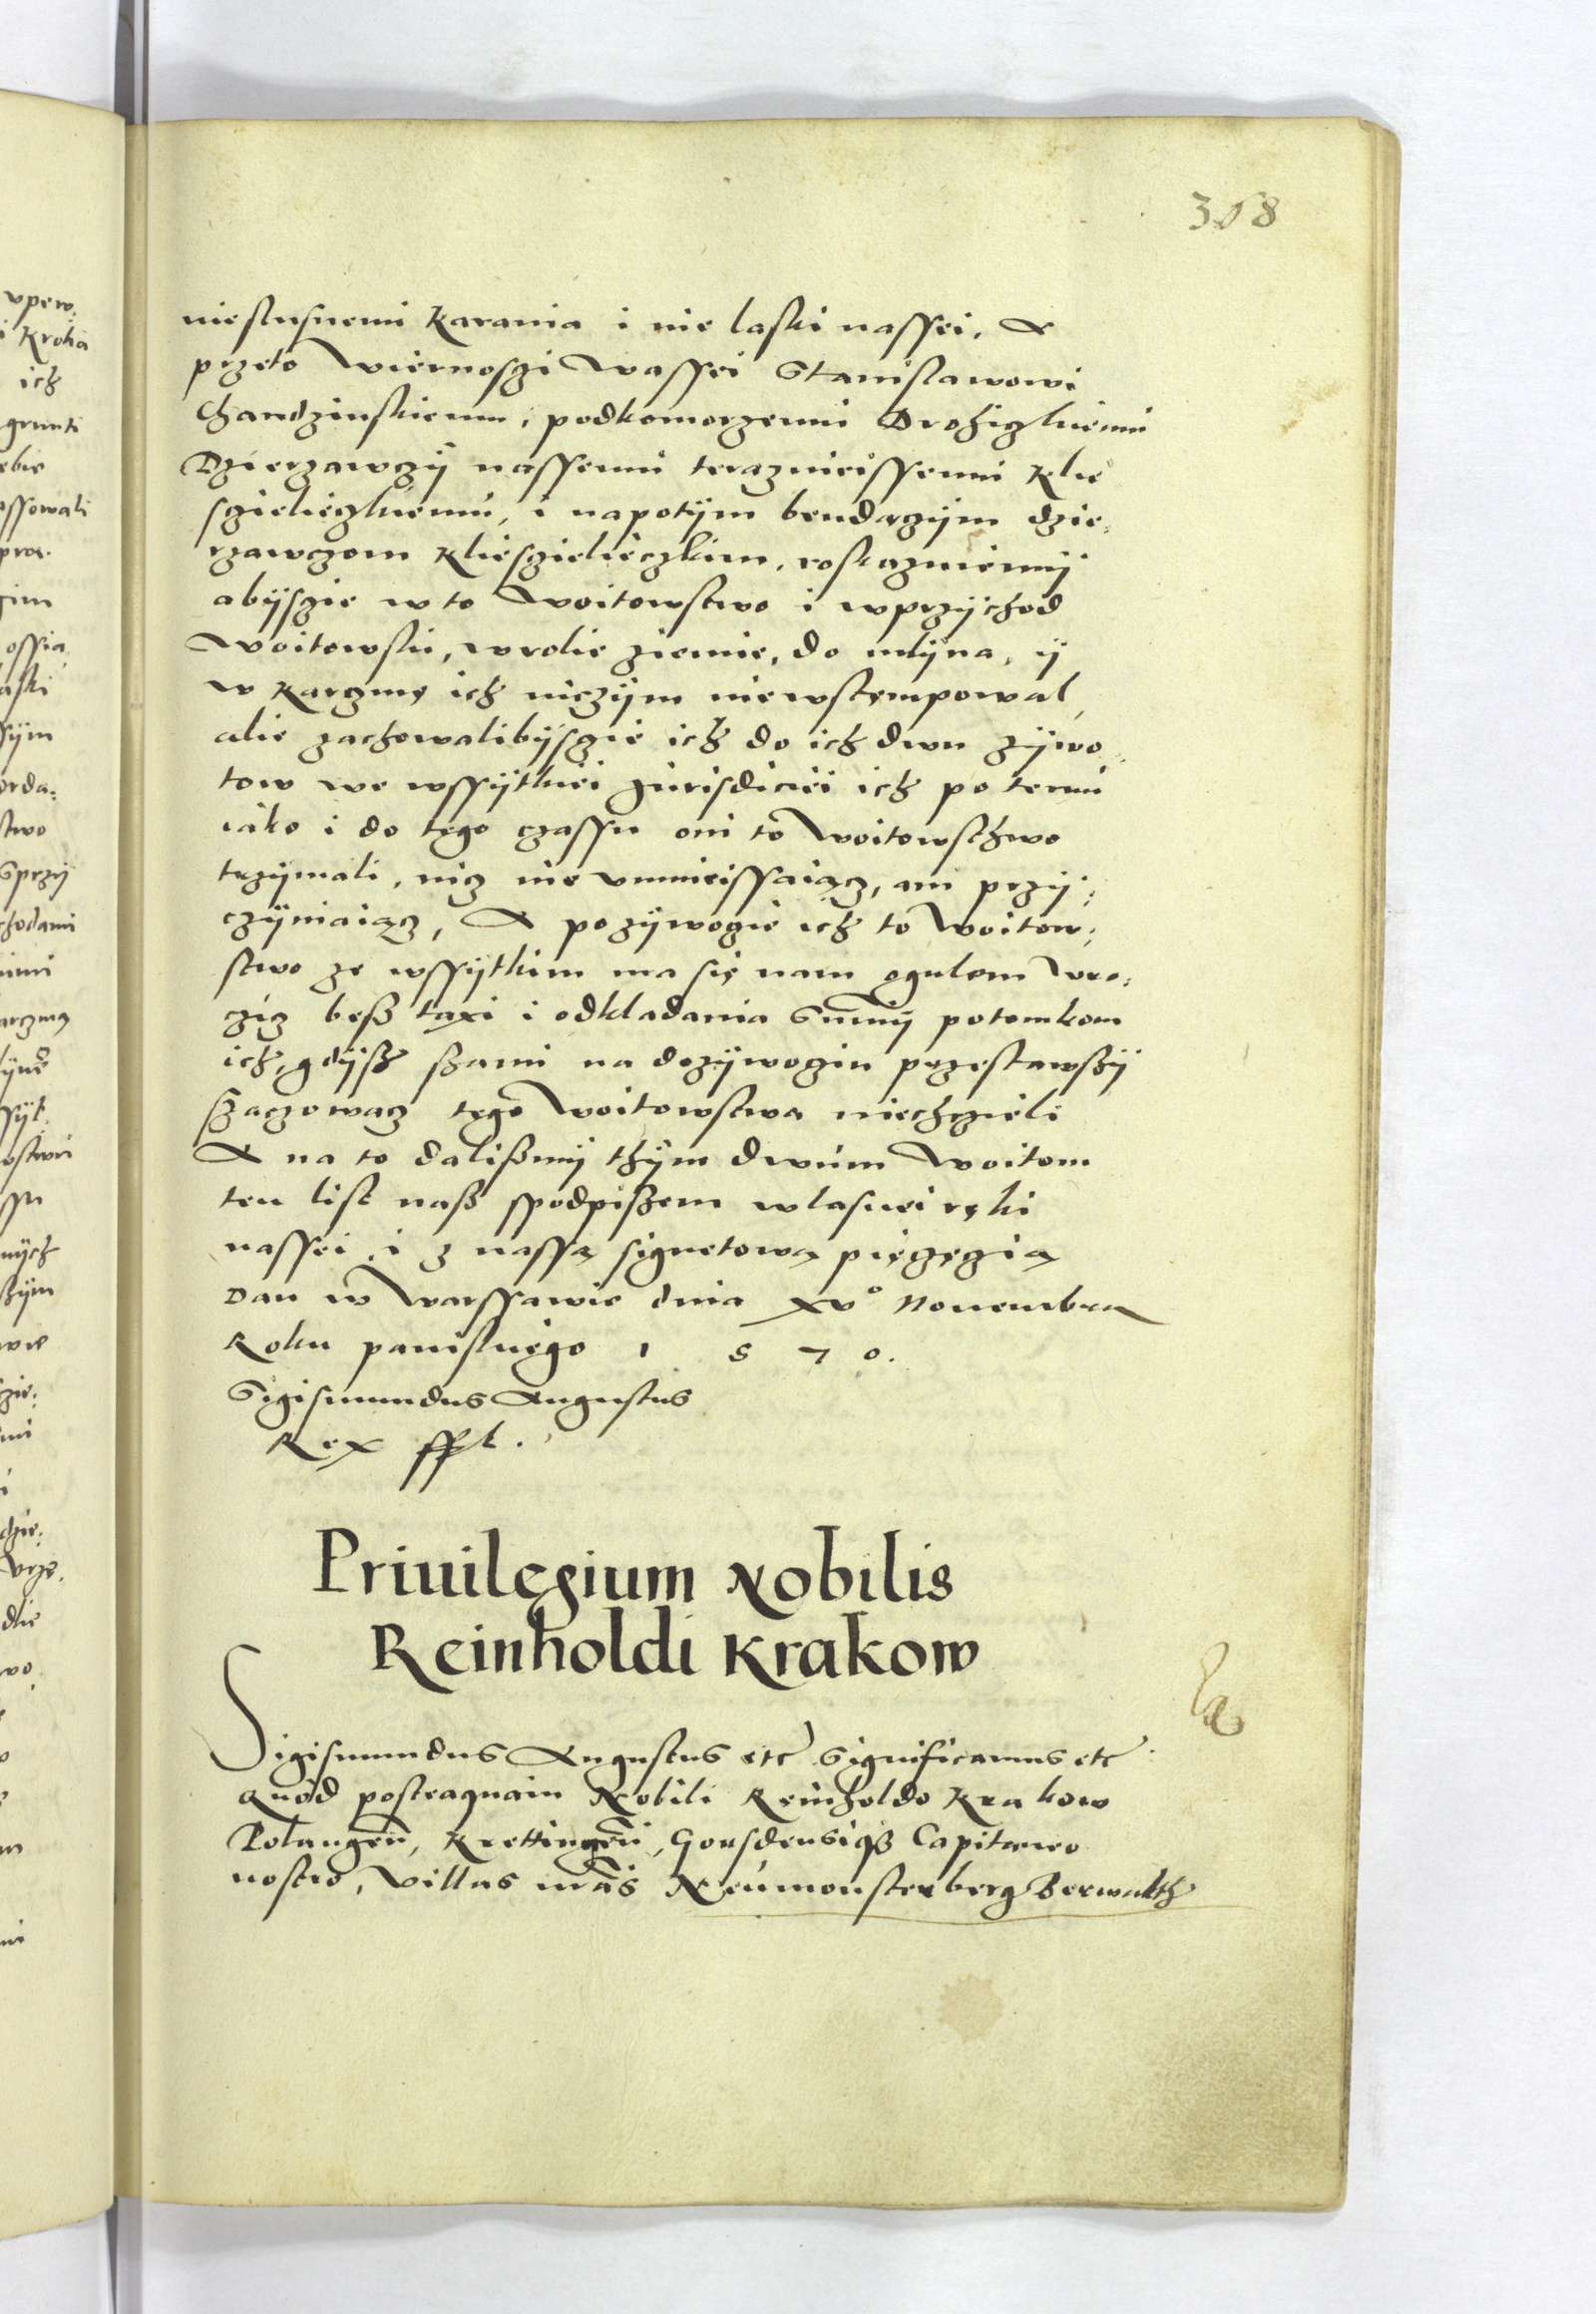 308
nieslusnemi karania i nie laski nassei. A
przeto wiernoszi wassei Stanislawowi
Chandzinskiemu, podkomorzemu Drohizkiemu
Dzierzawczÿ nassemu teraznieissemu Klie
szieliezkiemu, i napotÿm bendązÿm dzie,
rzawczom Klieszielieczkim, roskazuiemÿ
abÿszie w to woitowstwo i wprzÿchod
Woitowski, wrolie ziemie, do mlÿna, ÿ
w karczmę ich niczÿm niewstempowal,
alie zachowalibÿszie ich do ich dwu zÿwo,
tow we wssÿtkiei Jurisdiciei ich po temu
iako i do tego czassu oni to woitowsthwo
trzÿmali, nicz nie vmnieissaiącz, ani przÿ,
czÿniaiącz, A pozÿwozie ich to woitow,
stwo ze wssÿtkim ma się nam ogulem wro,
zicz besz taxi i odkladania Summÿ potomkom
ich, gdÿsz szami na dozÿwoziu przestawszÿ
szaczowacz tego woitowstwa niechzieli
A na to dalismÿ thÿm dwum woitom
ten list nasz spodpiszem wlasnei ręki
nassei i z nassą signetową pięzęzią
Dan w Warssawie dnia xv° Nouembra
Roku panskiego 1 5 7 0.
Sigismundus Augustus
Rex sspt.
Priuilegium Nobilis
Reinholdi Krakow
Sigismundus Augustus etc Significamus etc
Quod posteaquam Nobili Reinholdo Krakow
Polangen̄, Krettingen̄, Gorsdensiqз Capitaneo
nostro, villas nr̄as Neumonsterberg Berwalth